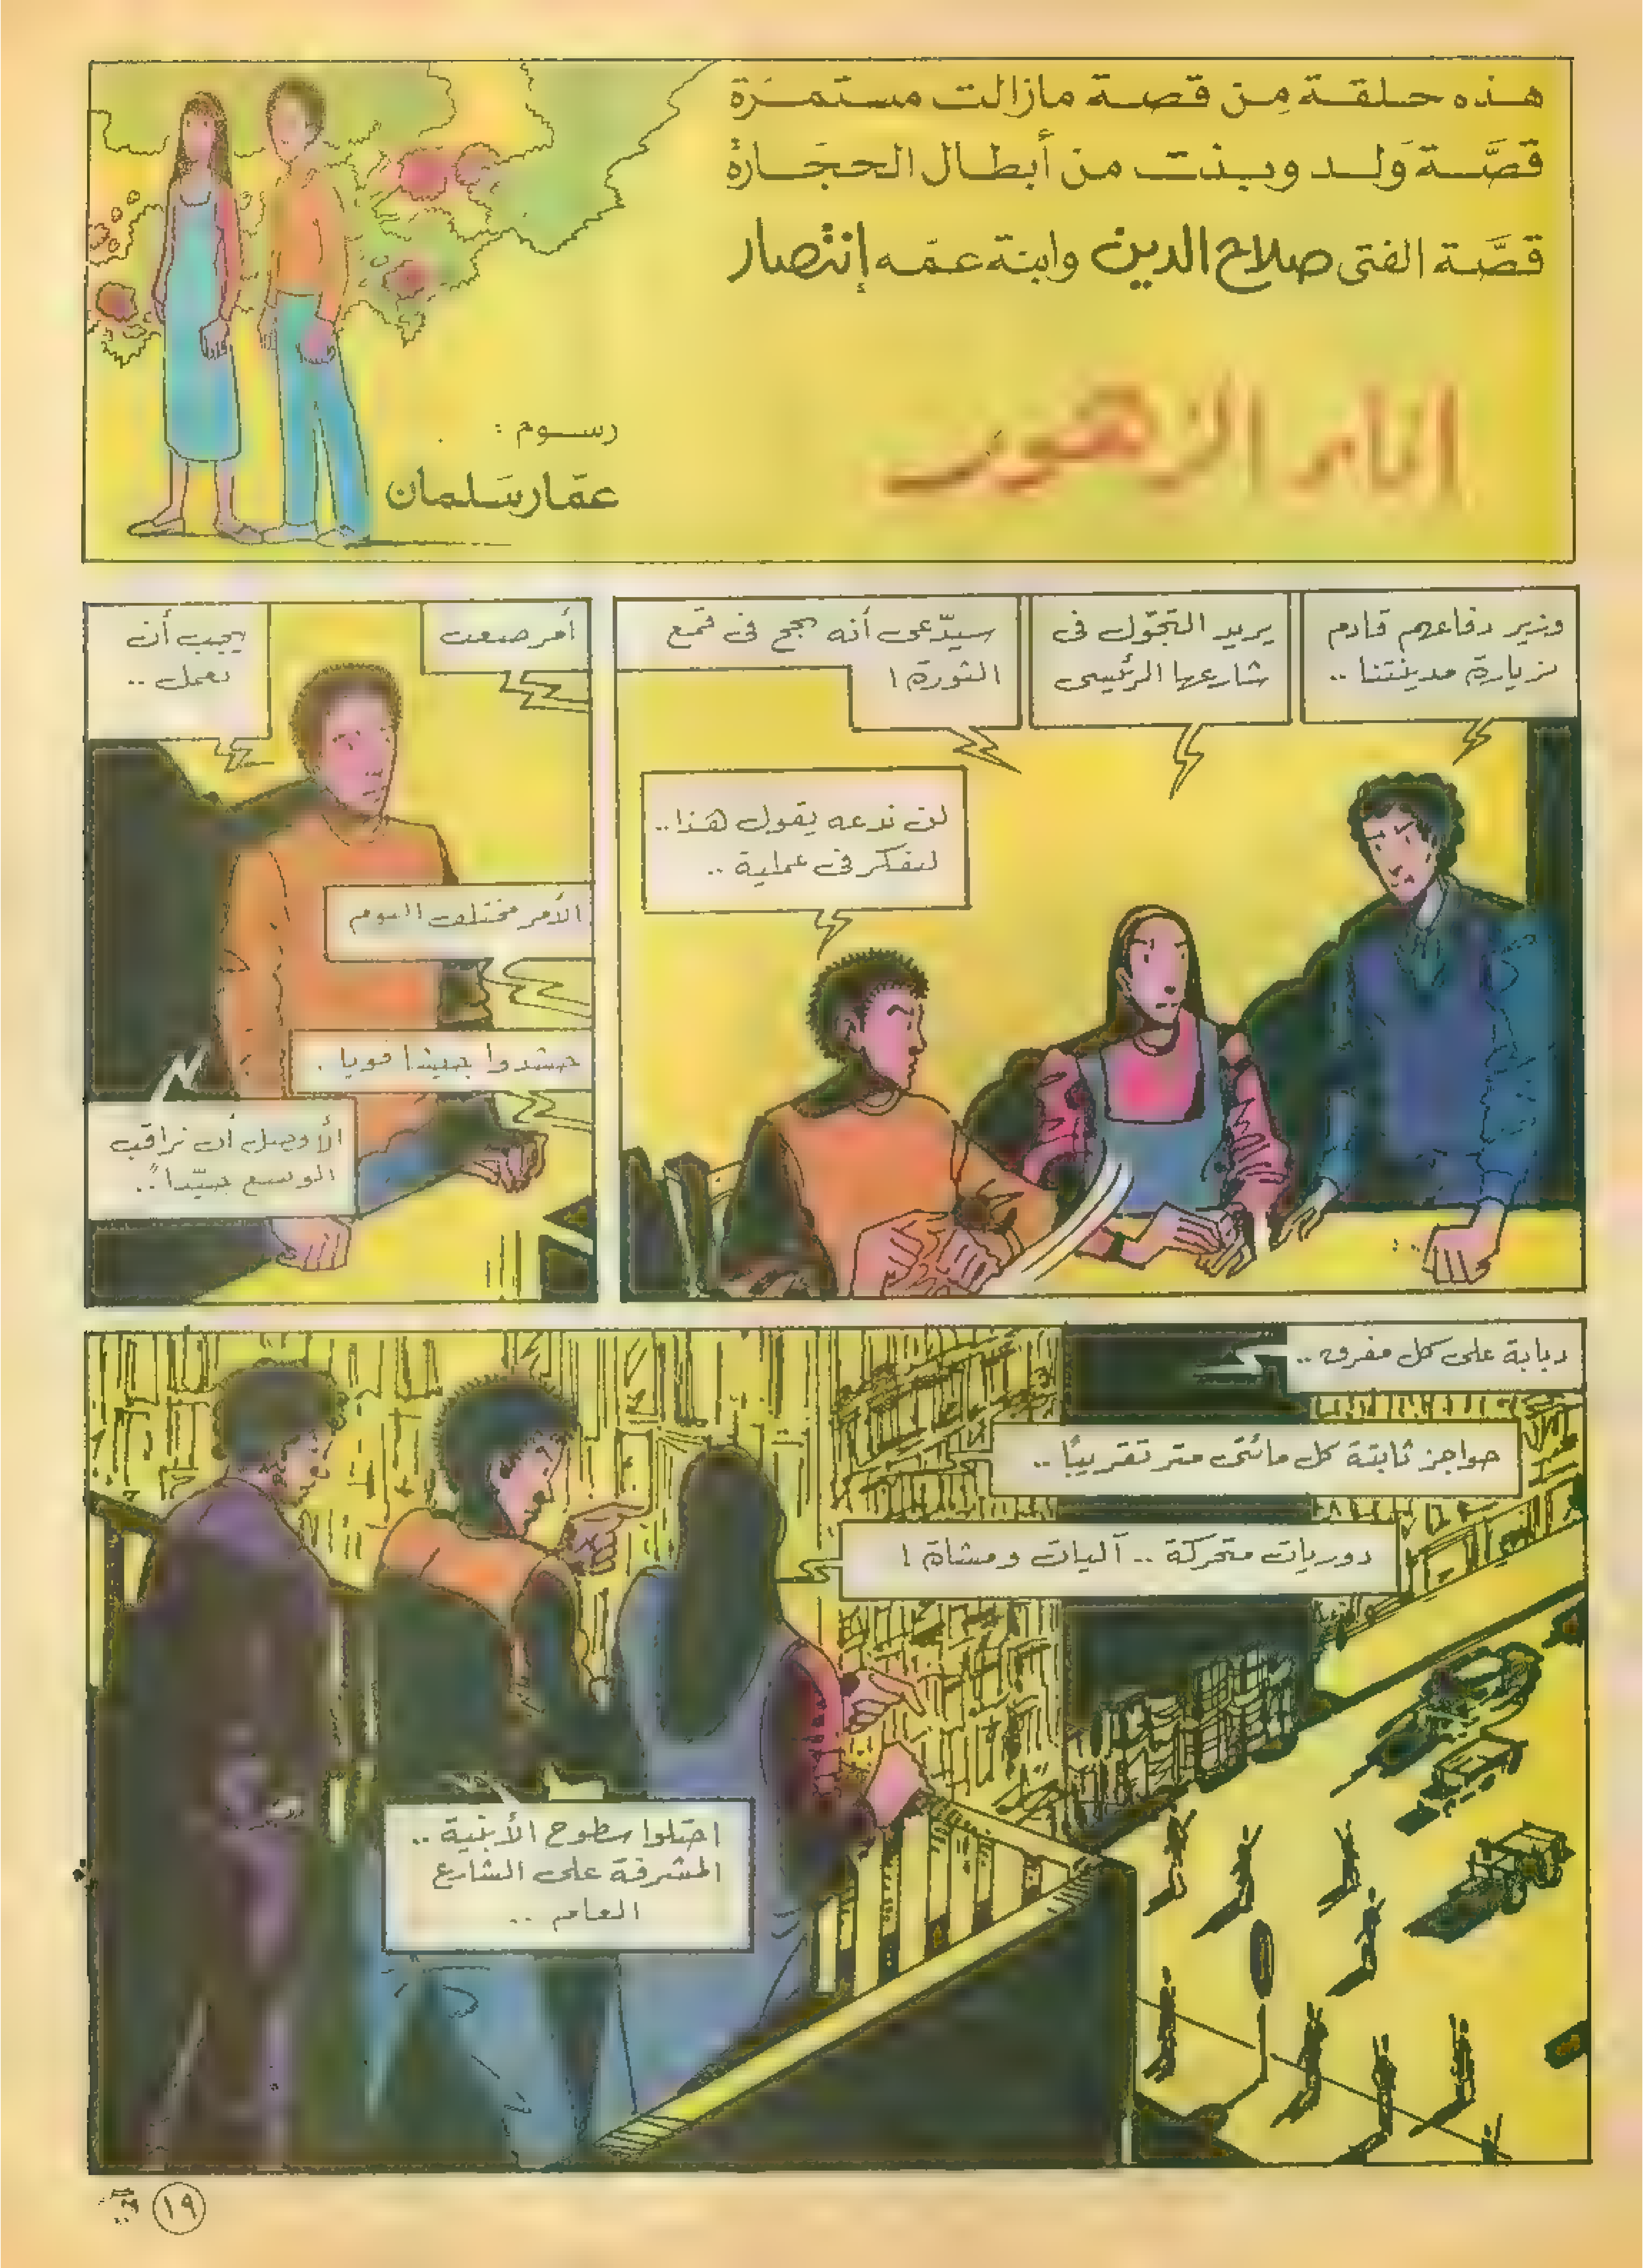 هذه حلقة من قصة مازالت مستمرة
قصَّة وَلد وبنت من أبطال الحجَارة
قصَّة الفتى صلاح الدين وابنة عمّه إنتصار
رسوم :
عمّار سَلمان
وزير دفاعهم قادم
لزيارة مدينتنا ..
يريد التجّول فى
شارعها الرئيسى
سيدّعى أنه نجح فى قمع
الثورة !
لن ندعه يقول هذا ..
لنفكر فى عملية ..
أمر صعب
يجب أن
نعمل ..
الأمر مختلف اليوم
حشدوا جيشا قويا .
الأفضل أن نراقب
الوضع جيّداً ..
دبابة على كل مفرق ..
حواجز ثابتة كل مائتى متر تقريبًا ..
دوريات متحركة .. آليات ومشاة !
احتلوا سطوح الأبنية ..
المشرفة على الشارع
العام ..
١٩